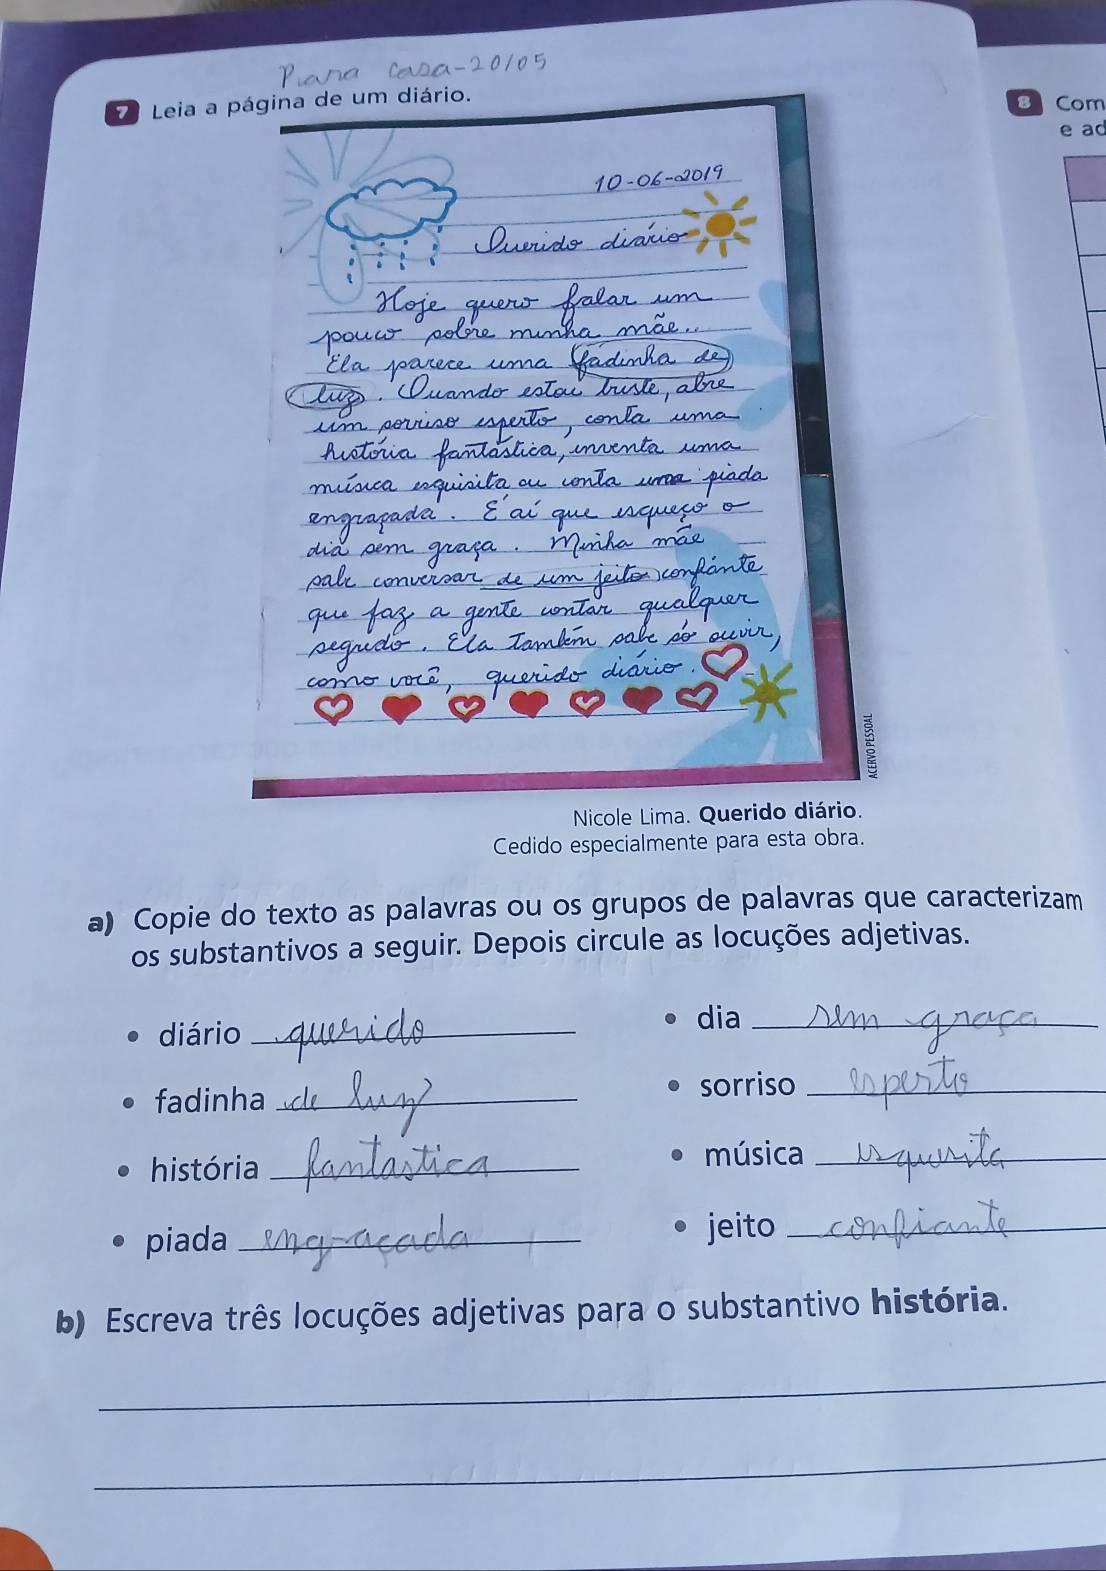 Para casa-20/05
7 Leia a página de um diário.
10-06-2019
Querido diário
Hoje quero falar um
pouco sobre minha mãe..
Ela parece uma fadinha de
luz. Quando estou triste, abre
um sorriso esperto, conta uma
história fantástica, inventa uma
música esquisita ou conta uma piada
engraçada. E aí que esqueço o
dia sem graça. Minha mãe
sabe conversar de um jeito confiante
que faz a gente contar qualquer
segredo. Ela também sabe só ouvir,
como você, querido diário.
ACERVO PESSOAL
Nicole Lima. Querido diário.
Cedido especialmente para esta obra.
a) Copie do texto as palavras ou os grupos de palavras que caracterizam
os substantivos a seguir. Depois circule as locuções adjetivas.
• diário querido
• fadinha de luz
• história fantastica
• piada engraçada
• dia sem graça
• sorriso esperto
• música esquisita
• jeito confiante
b) Escreva três locuções adjetivas para o substantivo história.
8 Com
e ad